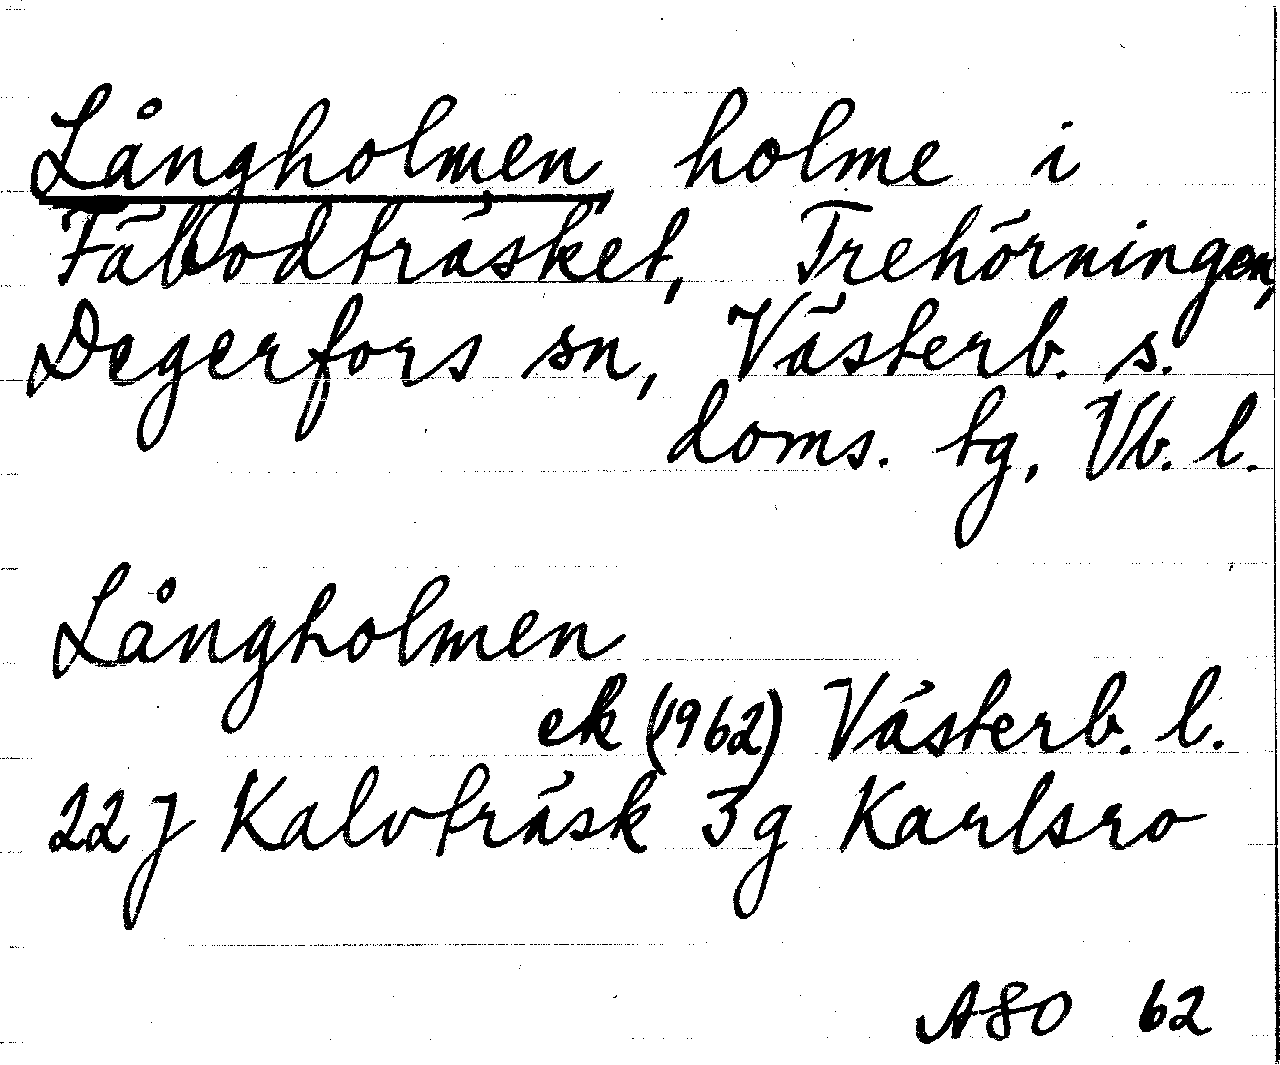 Långholmen, holme i
Fäbodträsket, Trehörningen,
Degerfors sn, Västerb. s.
doms. tg, Vb. l.
Långholmen
ek (1962) Västerb. l.
22J Kalvträsk 3g Karlsro
ASO 62